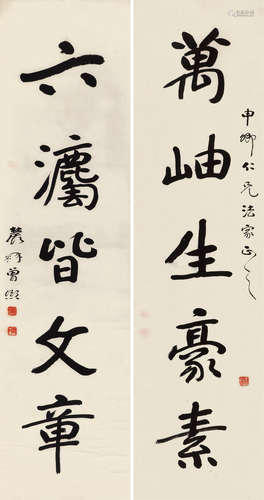 申卿仁兄法家正之
萬岫生豪素
六皆文章
農髯曾熙